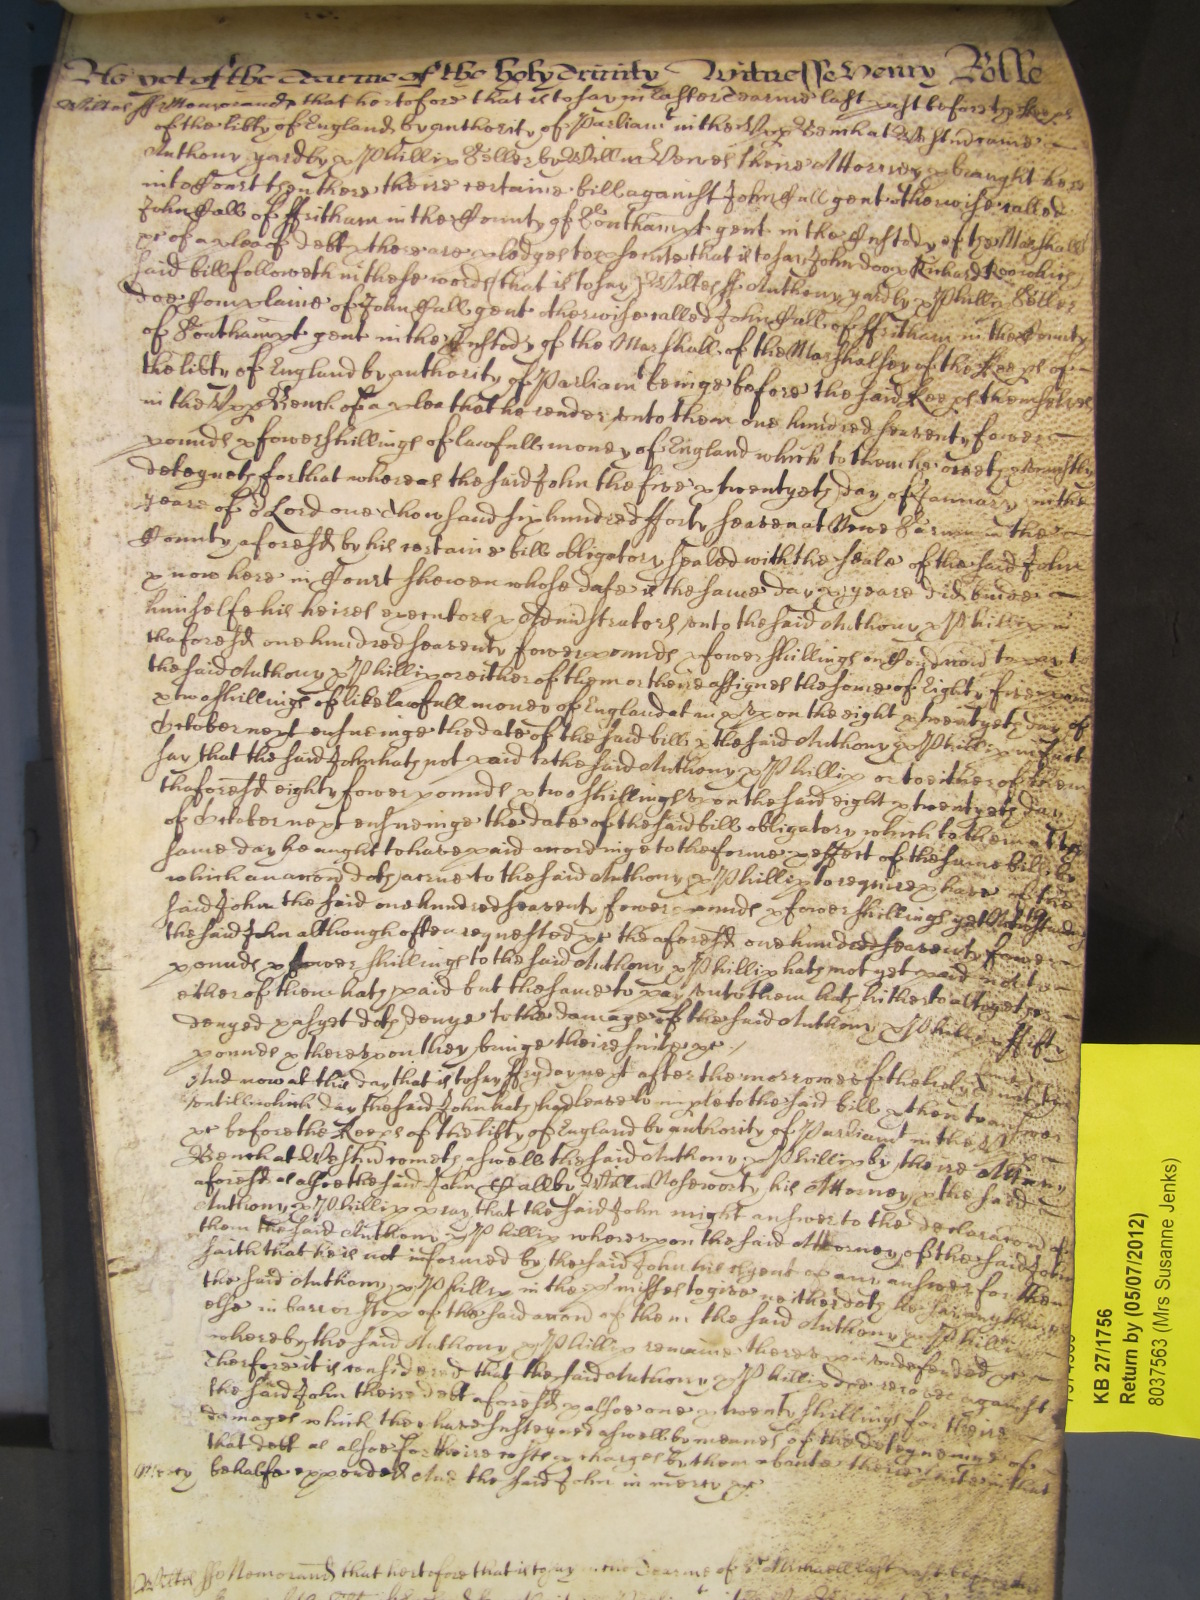 As yet of the Tearme of the holy Trinity Witnesse Henry Rolle
Wiltes ss Memorand that hertofore that is to say in Easter Tearme last past before the Keeps
of the libty of England by authority of Parliamt in the Upp Bench at Westm came
Anthony yardby & Phillip by Willm theire Attorney & brought here
into Court then there theire certaine bill against John gent otherwise called
John of ffritham in the County of Southampt gent in the Custody of the Marshall
&c of a plea of debt & there are pledges to psecute that is to say John doo & Richard Roo which
said bill followeth in these words that is to say Wiltes ss Anthony yardby & Phillip
doe Complaine of John gent otherwise called John of ffritham in the County
of Southampt gent in the Custody of the Marshall of the Marshalsey of the Keeps of
the libty of England by authority of Parliamt beinge before the said Keeps themselves
in the Upp Bench of a plea that he render unto them one hundred seaventy fower
pounds & fower shillings of lawfull money of England which to them he oweth & uniustly
deteyneth for that whereas the said John the five & twentyeth day of January in the
yeare of or Lord one thowsand six hundred fforty seaven at Newe Sarum in the
County aforesd by his certaine bill obligatory sealed with the seale of the said John
& now here in Court shewen whose date is the same day & yeare did binde
himselfe his heires executors & Administrators unto the said Anthony & Phillip in
thaforesd one hundred seaventy fower pounds & fower shillings on Condicion to pay to
the said Anthony & Phillip or either of them or theire assignes the some of Eighty
& two shillings of like lawfull money of England at & upon the eight & twentyeth day of
October next ensueinge the date of the said bill & the said Anthony & Phillip in fact
say that the said John hath not paid to the said Anthony & Phillip or to either of them
thaforesd eighty fower pounds & two shillings upon the said eight & twentyeth day
of October next ensueinge the date of the said bill obligatory which to them att the
same day he aught to have paid accordinge to the forme & effect of the same bill by
which an accon doth accrue to the said Anthony & Phillip to require & have of the
said John the said one hundred seaventy fower pounds & fower shillings yet Notwthstanding
the said John although often requested &c the aforesd one hundred seaventy fower
pounds & fower shillings to the said Anthony & Phillip hath not yet paid nor to
ether of them hath paid but the same to pay unto them hath hitherto altogether
denyed & as yet doth denye to the damage of the said Anthony & Phillip ffifty
pounds & thereupon they bringe theire suite &c
And now at this day that is to say ffryday next after the morrowe of the holy Trinity
untill which day the said John hath had leave to imple to the said bill & then to answer
&c before the Keeps of the libty of England by authority of Parliamt in the Upp
Bench at Westm cometh aswell the said Anthony & Phillip by theire Attorny
aforesd as alsoe the said John by Willm Noseworthy his Attorney & the said
Anthony & Phillip pray that the said John might answer to the declaracon of
them the said Anthony & Phillip whereupon the said Attorney of the said John
saith that he is not informed by the said John his Clyent of any answer for them
the said Anthony & Phillip in the pmisses to give neither doth he say any thinge
else in barr or stop of the said accon of them the said Anthony & Phillip
whereby the said Anthony & Phillip remaine there upon undefended &c
Therfore it is considered that the said Anthony & Phillip doe recover against
the said John theire debt aforesd & alsoe one & twenty shillings for theire
damages which they have susteyned aswell by meanes of the deteyneing of
that debt as alsoe for theire costs & charges by them aboute theire suite in that
Mercy behalfe expended And the said John in mercy &c
Wiltes ss Memorand that hertofore that is to say in the Tearme of St Michaell last past before the
KB 27/1756
Return by (05/07/2012)
8037563 (Mrs Susanne Jenks)